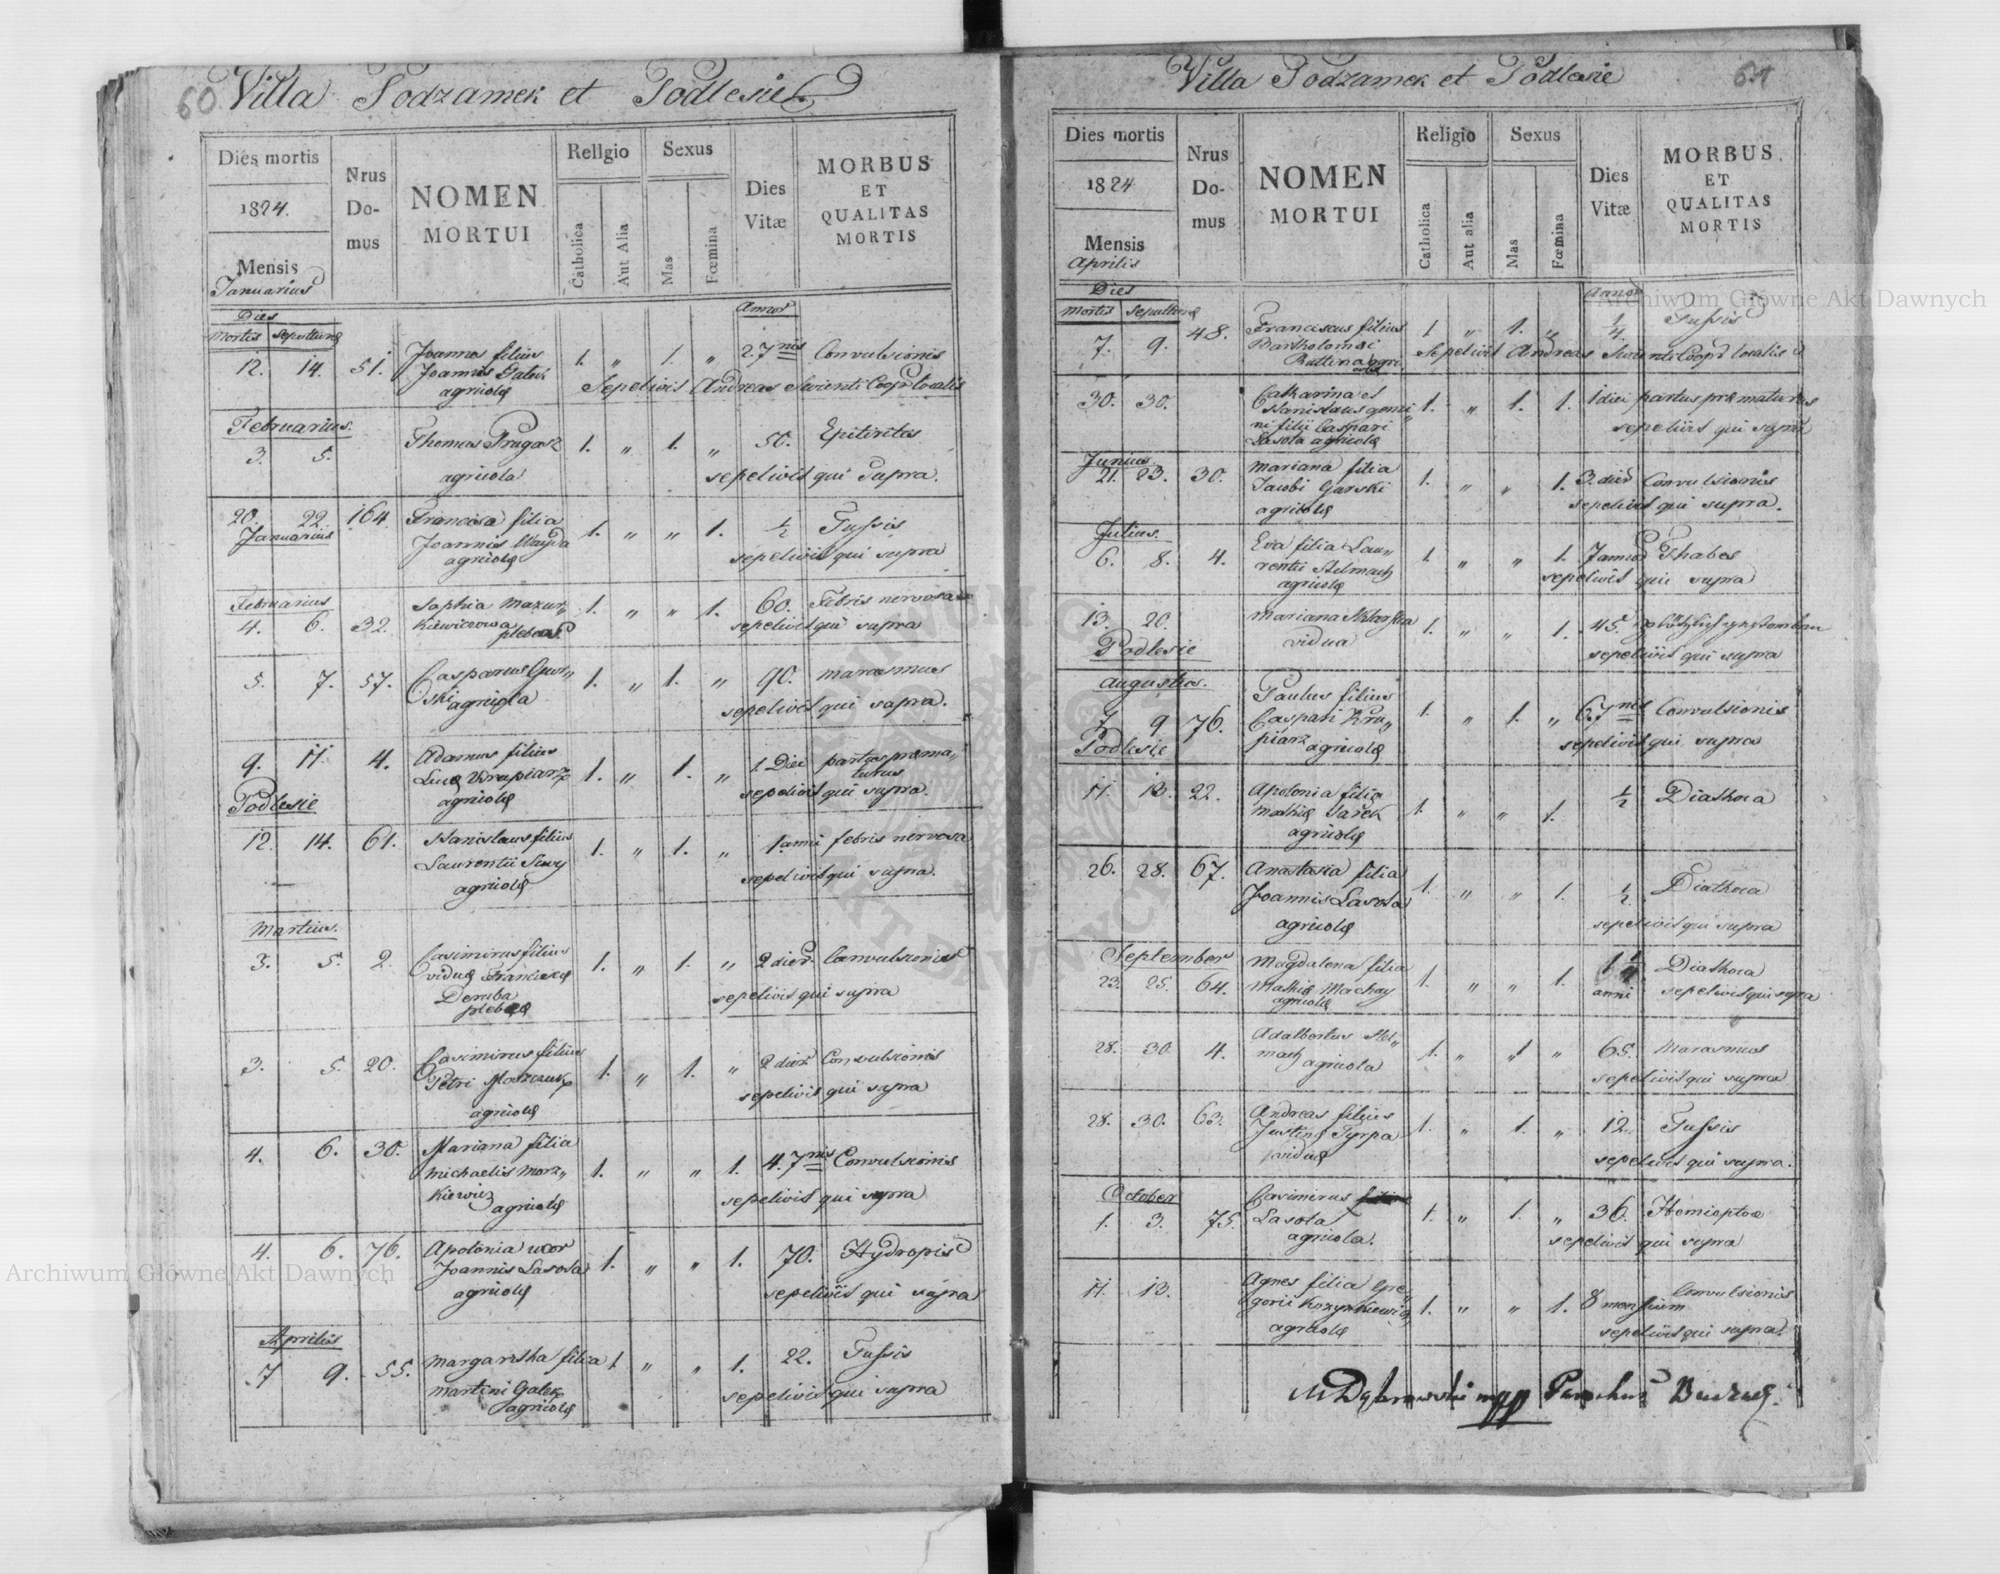 60 Villa Podzamek et Podlesie
Dies mortis
1824.
Mensis
Januarius
Nrus
Do-
mus
NOMEN
MORTUI
Religio
Catholica
Aut Alia
Sexus
Mas
Fœmina
Dies
Vitæ
MORBUS
ET
QUALITAS
MORTIS
Dies
Mortis Sepulturæ
Annor
12. 14. 51. Joannes filius 1. „ 1. „ 2.7nis Convulsionis
Joannis Gatek
agricolæ
Sepelivit Andreas Swienti Coop localis
Februarius.
3. 5. Thomas Prugasz 1. „ 1. „ 50.
agricola
sepelivit qui supra.
20. 22. 164. Francisca filia 1. „ „ 1. 1/2 Tussis
Januarius
Joannis Wayda
agricolæ
sepelivit qui supra
Februarius
4. 6. 32. Sophia Mazur„ 1. „ „ 1. 60. Febris nervosa
kiewiczowa
plebea
sepelivit qui supra
5. 7. 57. Casparus Gur„ 1. „ 1. „ 90. marasmus
ski agricola
sepelivit qui supra.
9. 11. 4. Adamus filius 1. „ 1. „ 1. Diei partus præma„
turus
Lucæ Krupiarz
agricolæ
sepelivit qui supra.
Podlesie
12. 14. 61. Stanislaus filius 1. „ 1. „ 1 anni febris nervosa
Laurentii Siwy
agricolæ
sepelivit qui supra.
Martius.
3. 5. 2. Casimirus filius 1. „ 1. „ 2 dier. Convulsionis
viduæ Franciscæ
Deruba
plebeæ
sepelivit qui supra
3. 5. 20. Casimirus filius 1. „ 1. „ 2 dier Convulsionis
Petri
agricolæ
sepelivit qui supra
4. 6. 30. Mariana filia 1. „ „ 1. 4.7nis Convulsionis
Michaelis Morz„
kiewicz
agricolæ
sepelivit qui supra
4. 6. 76. Apolonia uxor 1. „ „ 1. 70. Hydropis
Joannis Lasota
agricolæ
sepeliit qui supra
Aprilis
7 9. 55. Margaretha filia 1. „ „ 1. 22. Tussis
Martini Galek
agricolæ
sepelivit qui supra
Villa Podzamek et Podlesie 61
Dies mortis
1824
Mensis
Aprilis
Nrus
Do-
mus
NOMEN
MORTUI
Religio
Catholica
Aut alia
Sexus
Mas
Fœmina
Dies
Vitæ
MORBUS
ET
QUALITAS
MORTIS
Dies
Mortis Sepulturæ
Annor
7. 9. 48. Franciscus filius 1. „ 1. „ 1/4 Tussis
Bartholomæi
Ruttina agri
colæ
Sepelivit Andreas Swienti Coop localis
30. 30. Catharina et 1. „ 1. 1. 1 diei partus præmaturus
Stanislaus gemi
ni filii Caspari
Lasota agricolæ
sepeliit qui supra
Junius.
21. 23. 30. Mariana filia 1. „ „ 1. 3. dier Convulsionis
Jacobi Gurski
agricolæ
sepelivit qui supra.
Julius.
6. 8. 4. Eva filia Lau„ 1. „ „ 1. 7 annor Phabes
rentii Stelmach
agricolæ
sepelivit qui supra
13. 20. Mariana 1. „ „ 1. 45.
vidua
Podlesie
sepeliit qui supra
Augustus.
7. 9 76. Paulus filius 1. „ 1. „ 6.7nis Convulsionis
Caspari Kru„
piarz agricolæ
Podlesie
sepelivit qui supra
11. 13. 22. Apolonia filia 1. „ „ 1. 1/2 Diathoea
Mathiæ Parek
agricolæ
26. 28. 67. Anastasia filia 1. „ „ 1. 1/2 Diathoea
Joannis Lasota
agricolæ
sepelivit qui supra
September
23. 25. 64. Magdalena filia 1. „ „ 1. Diathoea
Mathiæ Machay
agricolæ
anni sepelivit qui supra
28. 30. 4. Adalbertus Stel„ 1. „ 1 „ 65. Marasmus
mach
agricola
sepelivit qui supra
28. 30. 63. Andreas filius 1. „ 1. „ 12. Tussis
Justinæ Pyrpa
viduæ
sepelivit qui supra.
October
1. 3. 75. Casimirus 1. „ 1. „ 36. Hemioptoe
Lasota
agricola.
sepelivit qui supra
11. 13. Agnes filia Gre„ 1. „ „ 1. 8 mensium Convulsionis
gorii
agricolæ
sepeliit qui supra.
M Dąbrowski mpp Parochus
Archiwum Główne Akt Dawnych
Archiwum Główne Akt Dawnych